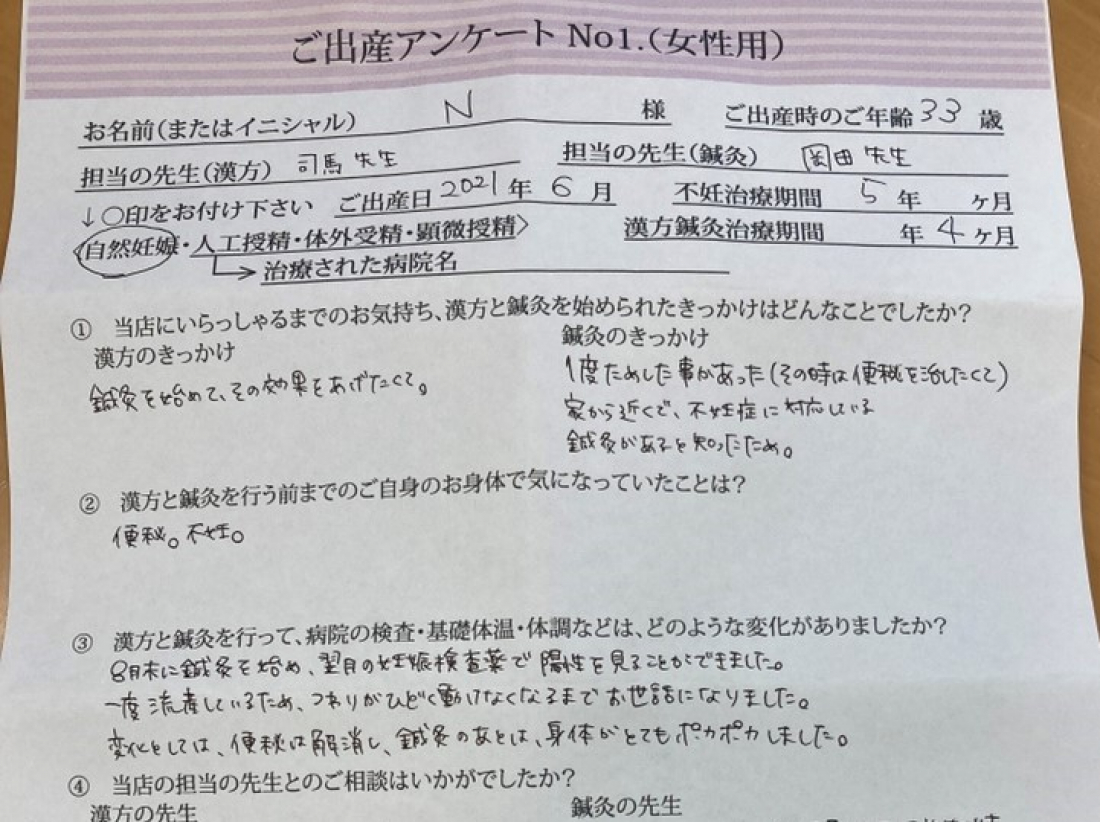 ご出産アンケート No1.(女性用)
お名前(またはイニシャル) N 様 ご出産時のご年齢 33 歳
担当の先生(漢方) 司馬先生 担当の先生(鍼灸) 岡田先生
↓○印をお付け下さい ご出産日 2021 年 6 月 不妊治療期間 5 年 ヶ月
自然妊娠・人工授精・体外受精・顕微授精〉 漢方鍼灸治療期間 年 4 ヶ月
治療された病院名
① 当店にいらっしゃるまでのお気持ち、漢方と鍼灸を始められたきっかけはどんなことでしたか?
漢方のきっかけ
鍼灸を始めて、その効果をあげたくて。
鍼灸のきっかけ
1度ためした事があった(その時は便秘を治したくて)
家から近くで、不妊症に対応している
鍼灸があると知ったため。
② 漢方と鍼灸を行う前までのご自身のお身体で気になっていたことは?
便秘。不妊。
③ 漢方と鍼灸を行って、病院の検査・基礎体温・体調などは、どのような変化がありましたか?
8月末に鍼灸を始め、翌月の妊娠検査薬で陽性を見ることができました。
一度流産しているため、つわりがひどく動けなくなるまでお世話になりました。
変化としては、便秘は解消し、鍼灸のあとは、身体がとてもポカポカしました。
④ 当店の担当の先生とのご相談はいかがでしたか?
漢方の先生 鍼灸の先生